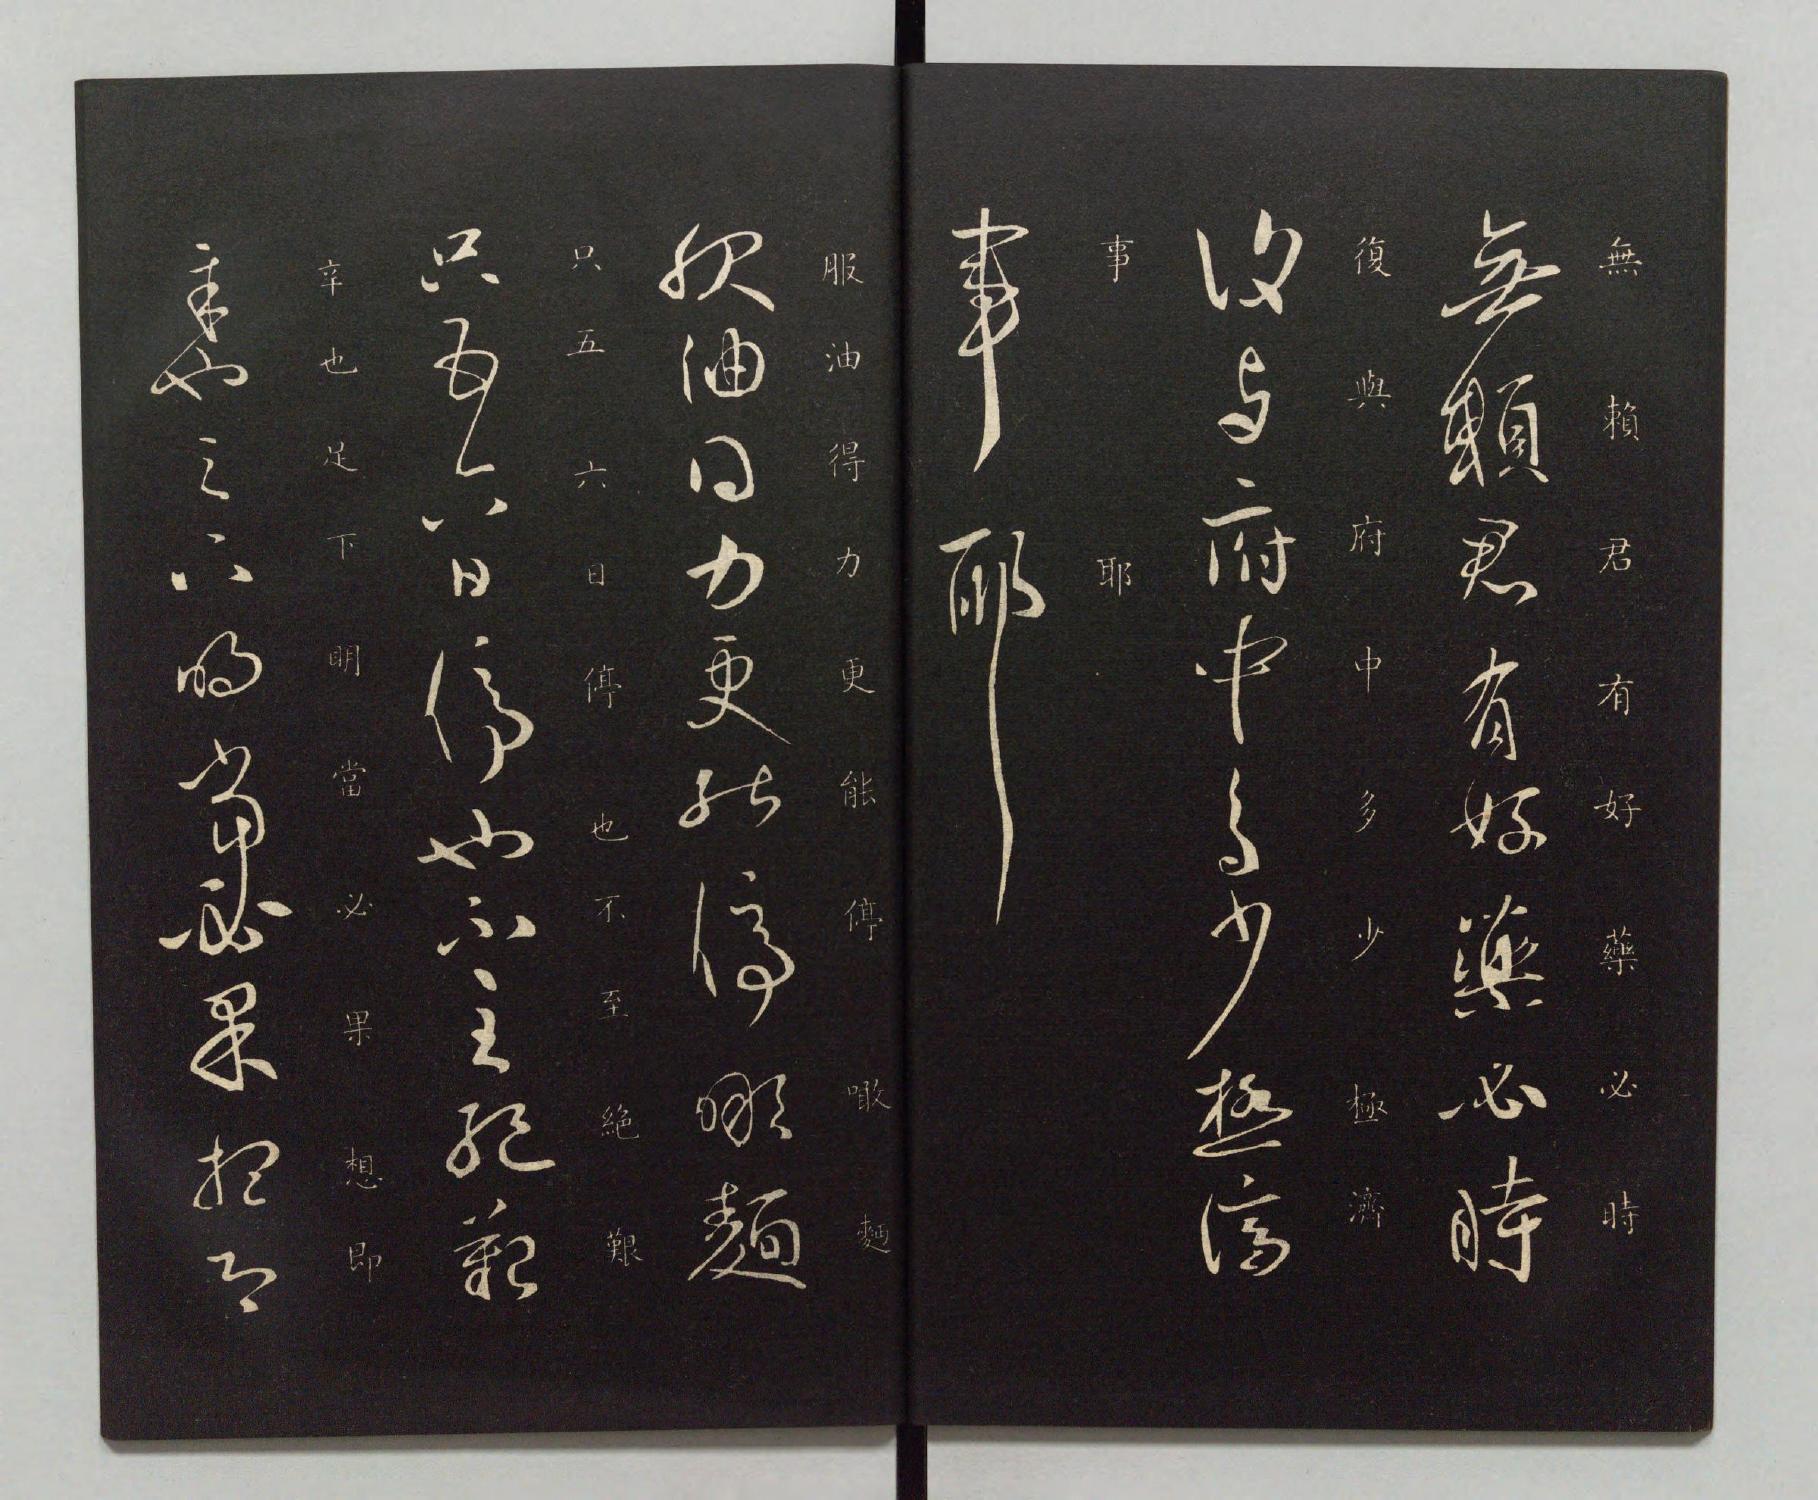 無賴君有好藥必時
無賴君有好藥必時
復與府中多少極濟
復與府中多少極濟
事耶
事耶
服油得力更能停噉麵
服油得力更能停噉麵
只五六日停也不至絕艱
只五六日停也不至絕艱
辛也足下明當必果想即
辛也足下明當必果想即